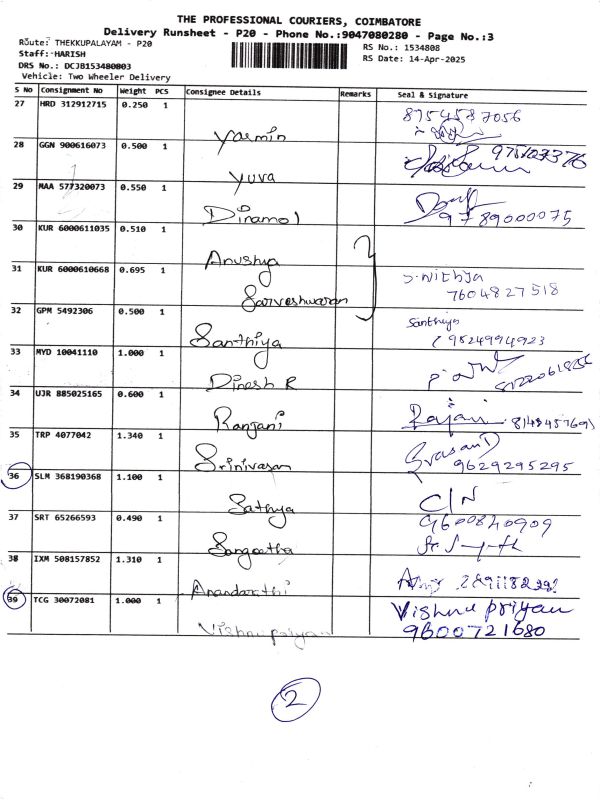 THE PROFESSIONAL COURIERS, COIMBATORE
Delivery Runsheet - P20 - Phone No.:9047080280 - Page No.:3
Route: THEKKUPALAYAM - P20
RS No.: 1534808
Staff:-HARISH
RS Date: 14-Apr-2025
DRS No.: DCJB153480803
Vehicle: Two Wheeler Delivery
S No Consignment No Weight PCS Consignee Details Remarks Seal & Signature
27 HRD 312912715 0.250 1
8754587056
Yasmin
28 GGN 900616073 0.500 1
Yuva
29 MAA 577320073 0.550 1
Dinamol
9789000075
30 KUR 6000611035 0.510 1
Anushya
31 KUR 6000610668 0.695 1
S.Nithya
7604827518
Sarveshwaran
32 GPM 5492306 0.500 1
Santhiya
9824994923
Santhiya
33 MYD 10041110 1.000 1
Dinesh R
34 UJR 885025165 0.600 1
Rajani
Ranjani
35 TRP 4077042 1.340 1
9629295295
Srinivasan
36 SLM 368190368 1.100 1
C/N
Sathya
37 SRT 65266593 0.490 1
9600840909
Sangeetha
38 IXM 508157852 1.310 1
39 TCG 30072081 1.000 1
Vishnu priyan
9600721680
Vishnu priyan
2